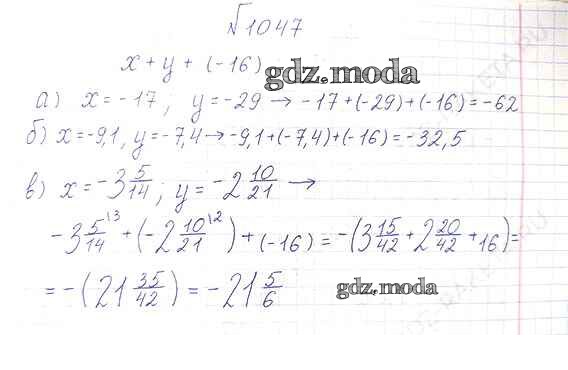 №1047
x + y + (-16)
gdz.moda
а) x = -17; y = -29 → -17 + (-29) + (-16) = -62
б) x = -9,1, y = -7,4 → -9,1 + (-7,4) + (-16) = -32,5
в) x = -3 5/14; y = -2 10/21 →
-3 5/14 \3 + (-2 10/21 \2) + (-16) = -(3 15/42 + 2 20/42 + 16) =
= -(21 35/42) = -21 5/6
gdz.moda